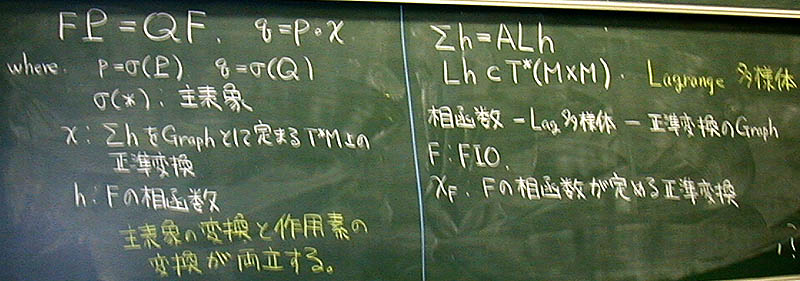 FP=QF. q=p∘χ
where. p=σ(P) q=σ(Q)
σ(*): 主表象
χ: ΣhをGraphとして定まるT*M上の
正準変換
h: Fの相函数
主表象の変換と作用素の
変換が両立する。
Σh=ALh
Lh⊂T*(M×M). Lagrange 多様体
相函数 - Lag多様体 - 正準変換のGraph
F: FIO.
χF. Fの相函数が定める正準変換